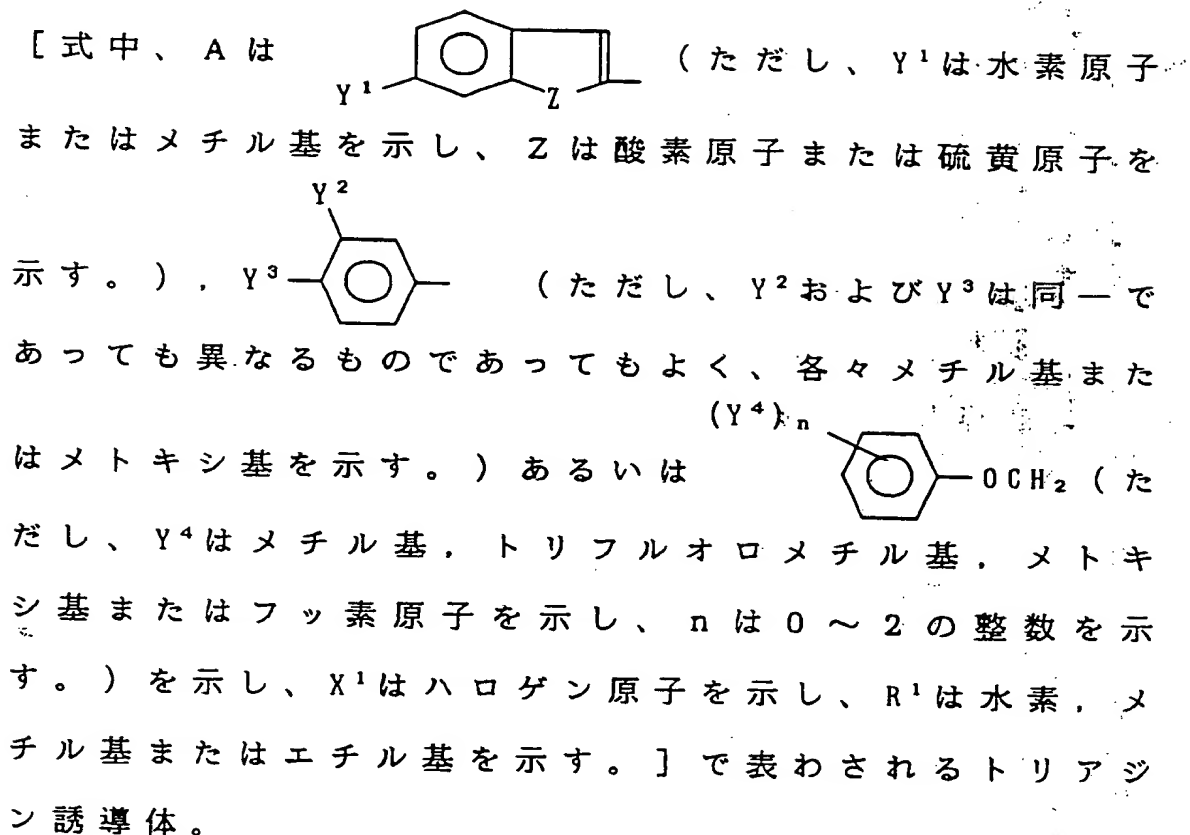 [式中、Aは Y¹ Z (ただし、Y¹は水素原子
またはメチル基を示し、Zは酸素原子または硫黄原子を
Y²
示す。)，Y³ (ただし、Y²およびY³は同一で
あっても異なるものであってもよく、各々メチル基また
(Y⁴)n
はメトキシ基を示す。)あるいは OCH₂(た
だし、Y⁴はメチル基．トリフルオロメチル基．メトキ
シ基またはフッ素原子を示し、nは0～2の整数を示
す。)を示し、X¹はハロゲン原子を示し、R¹は水素．メ
チル基またはエチル基を示す。]で表わされるトリアジ
ン誘導体。